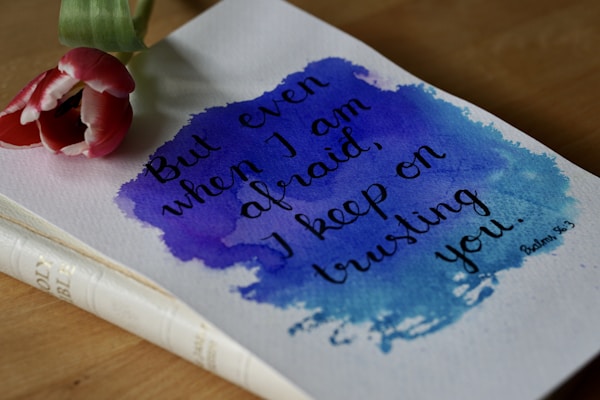 But even
when I am
afraid,
I keep on
trusting
you.
Psalms, 56:3
HOLY
BIBLE